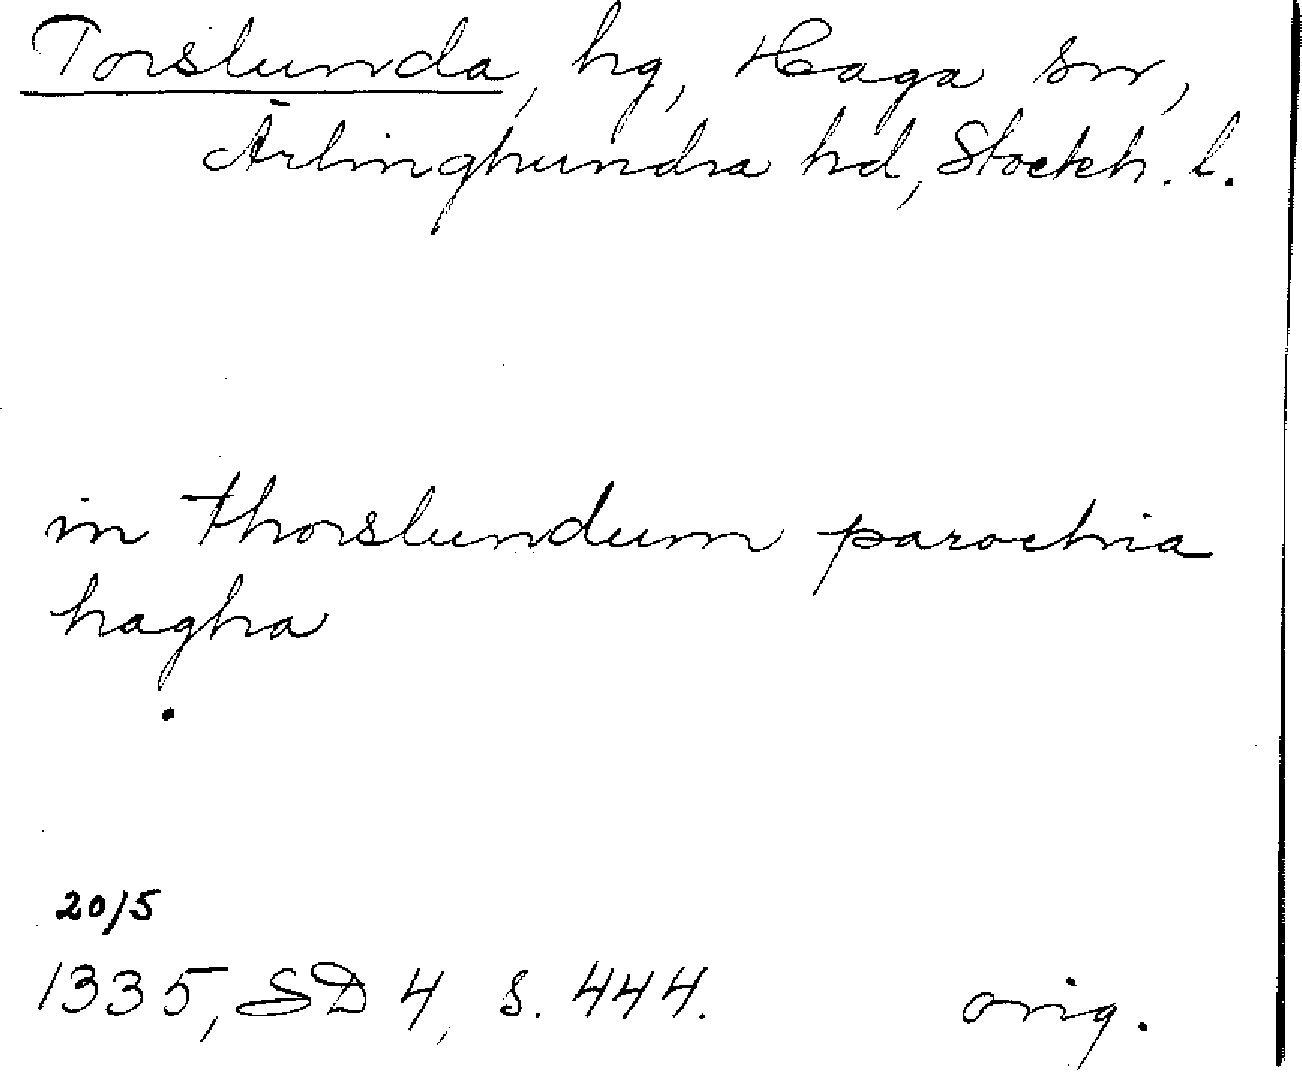 Torslunda, hg, Haga sn,
Ärlinghundra hd, Stockh. l.
in thorslundum parochia
hagha
20/5
1335, SD 4, s. 444. orig.